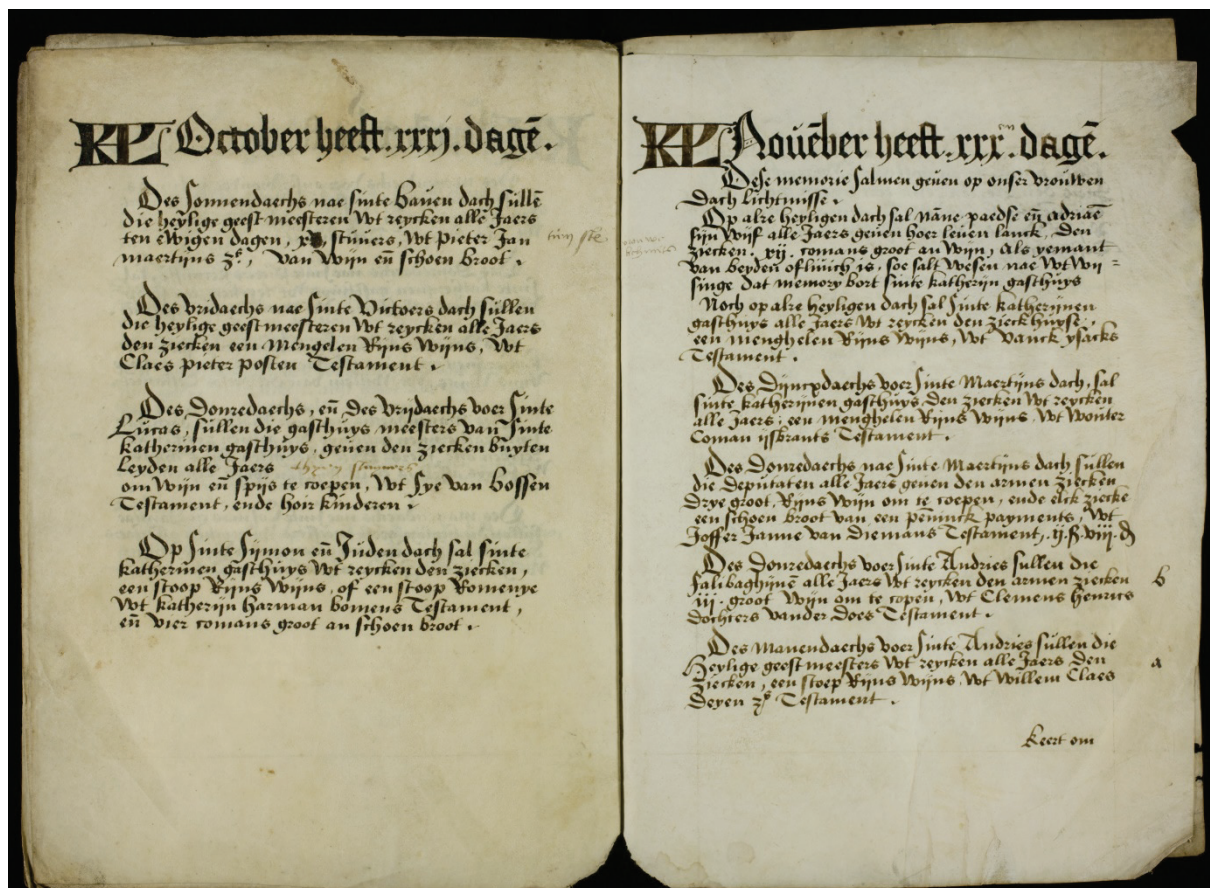 KL October heeft .xxxj. dagē.
Des Sonnendaechs nae sinte Bauen dach sullē
die heylige geest meesteren wt reycken alle Jaers
ten ewigen dagen, stuuers, wt pieter Jan
maertijns zꝭ, van wijn eñ schoen broot.
Des vridaechs nae sinte Victoers dach sullen
die heylige geest meesteren wt reycken alle Jaers
den ziecken een Mengelen Rijns wijns, wt
Claes pieter posten Testament.
Des Donredaechs, eñ des vrijdaechs voer sinte
Lucas, sullen die gasthuys meesters van sinte
katherinen gasthuys, geuen den ziecken buyten
Leyden alle Jaers
om wijn eñ spijs te coepen, wt Sye van Bossen
Testament, ende hoir kinderen.
Op sinte Sijmon eñ Juden dach sal sinte
katherinen gasthuys wt reycken den ziecken,
een stoop Rijns wijns, of een stoop Romenye
wt katherijn harman bomens Testament,
eñ vier comans groot an schoen broot.
KL Nouēber heeft .xxx. dagē.
Dese memorie salmen geuen op onser vrouwen
dach lichtnisse.
Op alre heyligen dach sal Nāne paedse eñ adriaē
sijn wijf alle Jaers geuen hoer leuen lanck, den
ziecken .xij. comans groot an wijn, als yemant
van beyden oflivich is, soe salt wesen nae wt wij=
singe dat memory bort sinte katherijn gasthuys
Noch op alre heyligen dach sal sinte katherijnen
gasthuys alle Jaers wt reycken den zieck huyse,
een menghelen Rijns wijns, wt vanck ysacks
Testament.
Des Dijncxdaechs voer sinte Maertijns dach, sal
sinte katherijnen gasthuys den ziecken wt reycken
alle Jaers, een menghelen Rijns wijns, wt wouter
Coman ijsbrants Testament.
Des Donredaechs nae sinte Maertijns dach sullen
die deputaten alle Jaers geuen den armen ziecken
drye groot, Rijns wijn om te coepen, ende elck ziecke
een schoen broot van een pēninck payments, wt
Joffer Janne van Diemans Testament, .ij. ß. viij. ₰
Des Donredaechs voer sinte Andries sullen die
falibaghijnē alle Jaers wt reycken den armen ziecken b
iij. groot wijn om te copen, wt Clemens henrics
dochters vander Does Testament.
Des Manendaechs voer sinte Andries sullen die
Heylige geest meesters wt reycken alle Jaers den a
ziecken, een stoep Rijns wijns, wt willem Claes
deyen zꝭ Testament.
Keert om